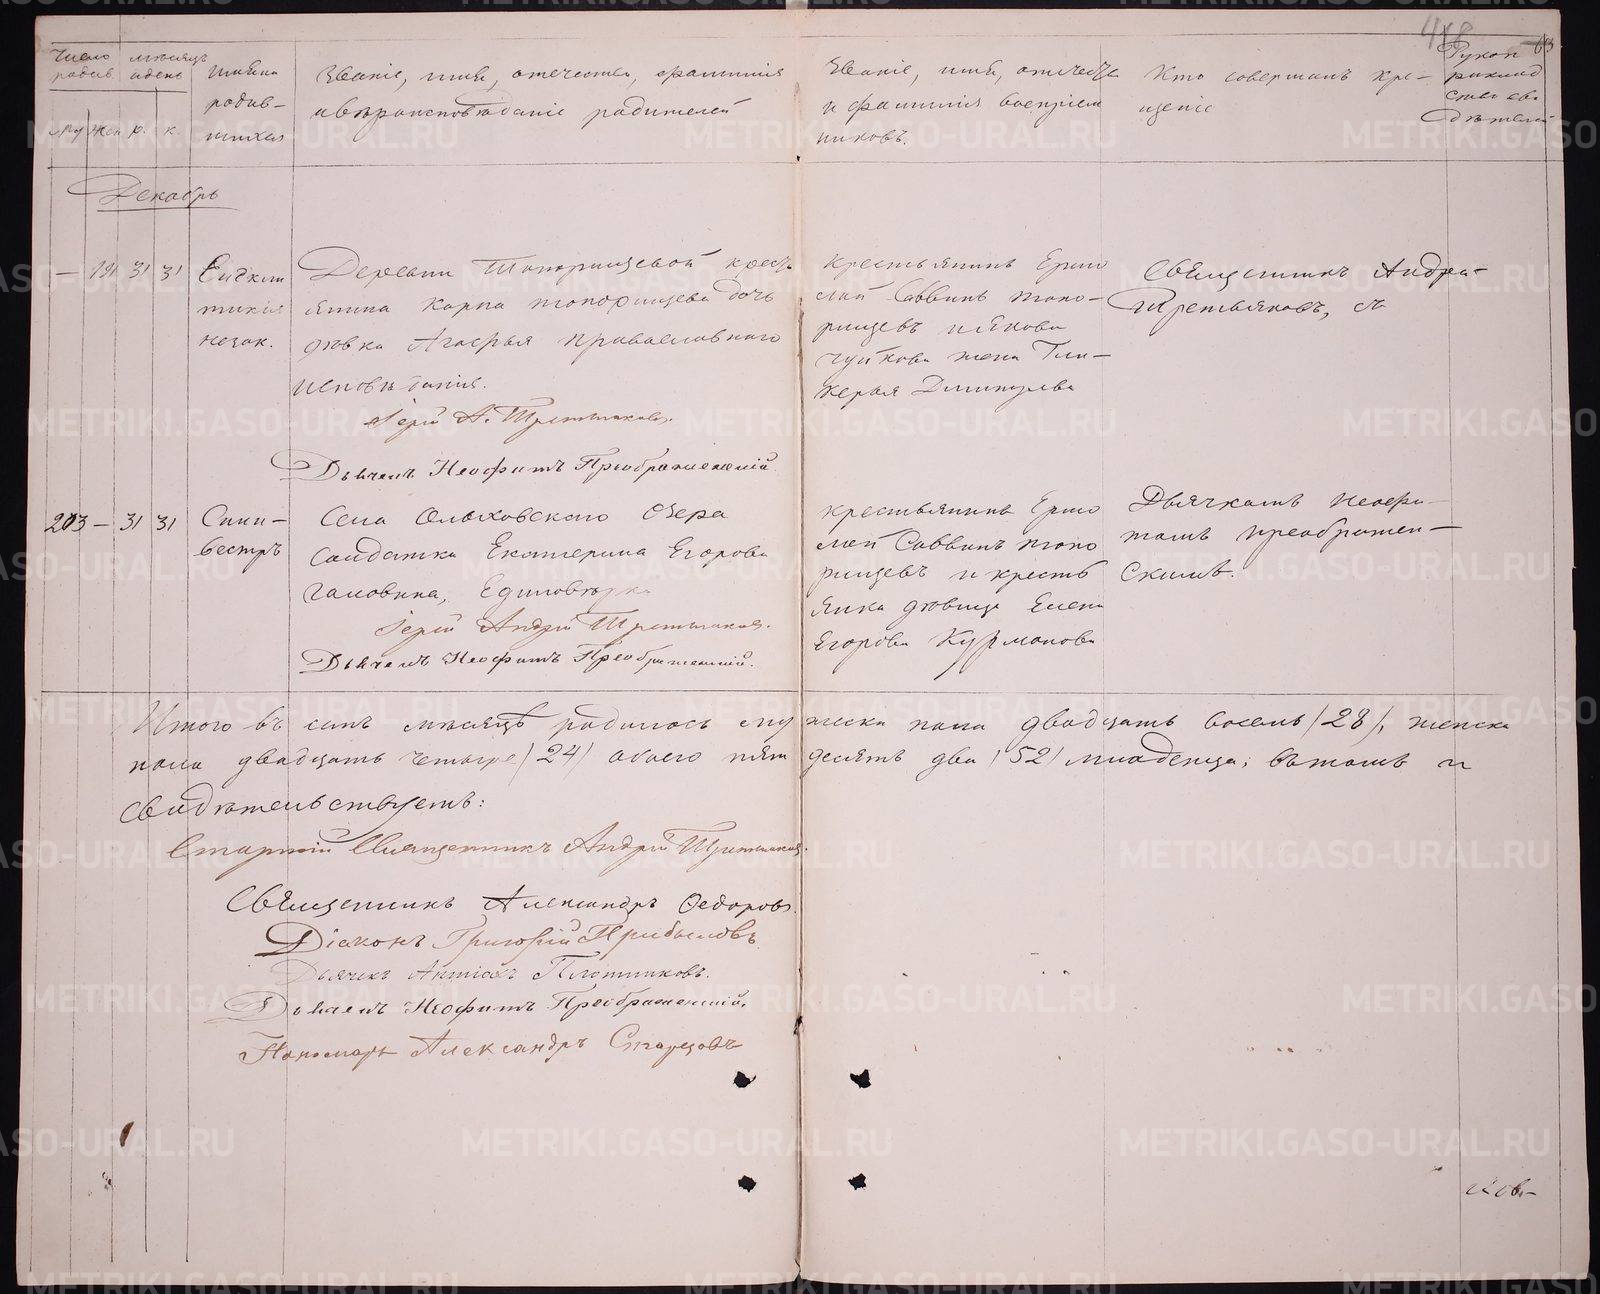 418
Число месяцъ
родив. и день
Имена
родив-
шихся
Званіе, имя, отечество, фамилія
и вѣроисповѣданіе родителей
Званіе, имя, отечество
и фамилія воспріем
никовъ.
Кто совершалъ кре-
щеніе
Рукоп
рикład
ство сви
дѣтелей
му жен р. к.
Декабрь
— 191 31 31
незак.
Деревни Топорищевой кресть
янина Карпа топорищева дочь
дѣвка Агафья православнаго
исповѣданія.
Іерей А. Третьяковъ.
Дьячекъ Неофитъ Преображенскій
Крестьянинъ Ермо
лай Саввинъ топо-
рищевъ и Якова
чуйкова жена Гли-
керья
Священникъ Андрей
Третьяковъ, съ
203 — 31 31
Сили-
вестръ
Села Ольховскаго Озера
Солдатка Екатерина Егорова
Галовина, Единовѣрка
Іерей Андрей Третьяковъ.
Дьячекъ Неофитъ Преображенскій.
крестьянинъ Ермо
лай Саввинъ топо
рищевъ и кресть
янка дѣвица Елена
Егорова Курманова
Дьячкомъ Неофи-
томъ преображен-
скимъ.
Итого въ семъ месяцѣ родилось мужеска пола двадцать восемь /28/, женска
пола двадцать четыре /24/ обоего пятьдесятъ два /52/ младенца; въ томъ и
свидѣтельствуемъ:
Старшій Священникъ Андрей Третьяковъ.
Священникъ Александръ Федоровъ.
Діаконъ Григорій Прибыловъ
Дьячекъ Антіохъ Плотниковъ.
Дьячекъ Неофитъ Преображенскій.
Пономарь Александръ Старцовъ
METRIKI.GASO-URAL.RU